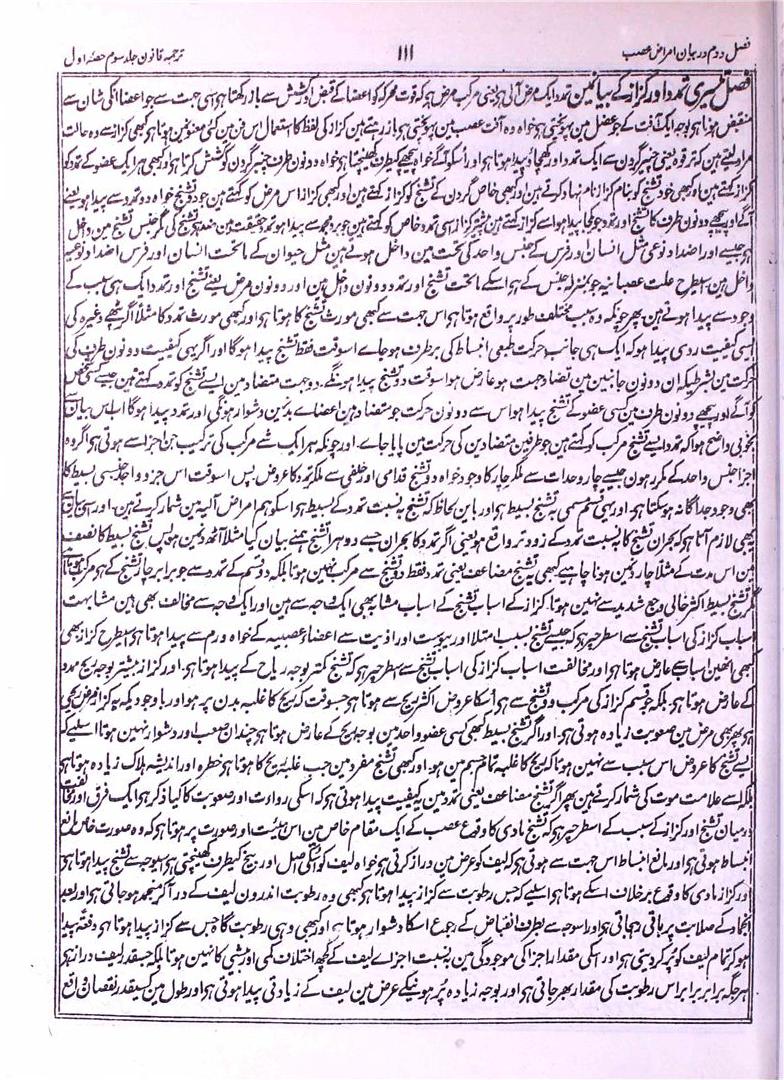 ترجمہ قانون جلد سوم حصہ اول
۱۱۱
فصل دوم در بیان امراض عصب
فصل تیسری تمدد اور کزاز کے بیان مین تمدد ایک مرض آلی ہو یعنی مرکب مرض ہو کہ قوت محرکہ کو اعضا کے قبض اور کشش سے باز رکھتا ہو اسی جہت سے جو اعضا انکی شان سے
منقبض ہونا ہو بوجہ ایک آفت کے جو عضل مین پہونچتی ہو خواہ وہ آفت عصب مین پہونچتی ہو باز رہتے ہین کزاز کی لفظ کا استعمال اس فن مین کئی معنونمین ہوتا ہو کبھی کزاز سے وہ حالت
مراد لیتے ہین کہ ترقوہ یعنی چنبر گردن سے ایک تمدد اور کھچاؤ پیدا ہوتا ہو اور اُسکو آگے خواہ پیچھے کیطرف کھینچتا ہو خواہ دونون طرف چنبر گردن کو کشش کرتا ہو اور کبھی ہر ایک عضو کے تمدد کو
کزاز کہتے ہین اور کبھی خود تشنج کو بنام کزاز نامزد کرتے ہین اور کبھی خاص گردن کے تشنج کو کزاز کہتے ہین اور کبھی کزاز اس مرض کو کہتے ہین جو دو تشنج خواہ دو تمدد سے پیدا ہو یعنے
آگے اور پیچھے دونون طرف کا تشنج اور تمدد جو یکجا پیدا ہو اسے کزاز کہتے ہین بیشتر کزاز اسی تمدد خاص کو کہتے ہین جو برد منجمد سے پیدا ہو تمدد حقیقت مین ضد ہو تشنج کی مگر جنس تشنج مین داخل
ہو جیسے اور اضداد نوعی مثل انسان اور فرس کے جنس واحد کی تحت مین داخل ہوتے ہین مثل حیوان کے ماتحت انسان اور فرس اضداد نوعیہ
داخل ہین اسیطرح علت عصبانیہ جو بمنزلہ جنس کے ہو اسکے ماتحت تشنج اور تمدد دونون داخل ہین اور دونون مرض یعنے تشنج اور تمدد ایک ہی سبب کے
وجود سے پیدا ہوتے ہین پھر چونکہ وہ سبب مختلف طور پر واقع ہوتا ہو اس جہت سے کبھی مورث تشنج کا ہوتا ہو اور کبھی مورث تمدد کا مثلاً اگر پٹھے وغیرہ کی
ایسی کیفیت ردی پیدا ہو کہ ایک ہی جانب حرکت طبعی انبساط کی برطرف ہو جاے اسوقت فقط تشنج پیدا ہوگا اور اگر یہی کیفیت دونون طرف کی
حرکت مین بشرطیکہ ان دونون جانبین مین تضاد جہت ہو عارض ہو اسوقت دو تشنج پیدا ہونگے۔ دو جہت متضاد مین ایسے تشنج کو تمدد کہتے ہین جیسے کسی شخص
کو آگے اور پیچھے دونون طرف مین کسی عضو کے تشنج پیدا ہو اس سے دونون حرکت جو متضاد ہین اعضاے بدنمین دشوار ہونگی اور تمدد پیدا ہوگا اب اس بیان سے
بخوبی واضح ہوا کہ تمدد ایسے تشنج مرکب کو کہتے ہین جو طرفین متضادین کی حرکت مین پایا جاے۔ اور چونکہ ہر ایک شے مرکب کی ترکیب جن اجزا سے ہوتی ہو اگر وہ
اجزا جنس واحد کے مکرر ہون جیسے چار وحدات سے ملکر چار کا وجود خواہ دو تشنج قدامی اور خلفی سے ملکر تمدد کا عروض پس اسوقت اس جزو واحد جنسی بسیط کا
بھی وجود جداگانہ ہو سکتا ہو۔ اور یہی قسم مسمی بہ تشنج بسیط ہو اور باین لحاظ کہ تشنج بہ نسبت تمدد کے بسیط ہو اسکو ہم امراض آلیہ مین شمار کرتے ہین۔ اور اس بیان سے
یہ بھی لازم آتا ہو کہ بحران تشنج کا بہ نسبت تمدد کے زود تر واقع ہو یعنی اگر تمدد کا بحران جسے دوہرا تشنج ہمنے بیان کیا مثلاً آٹھ دنمین ہو پس تشنج بسیط کا نصف
مین اس مدت کے مثلاً چار دنمین ہونا چاہیے کبھی یہ تشنج مضاعف یعنی تمدد فقط دو تشنج سے مرکب نہین ہوتا بلکہ دو قسم کے تمدد سے جو برابر چار تشنج کے ہو مرکب ہوتا ہو
مگر تشنج بسیط اکثر خالی وجع شدید سے نہین ہوتا۔ کزاز کے اسباب تشنج کے اسباب مشابہ بھی ایک وجہ سے ہین اور ایک وجہ سے مخالف بھی ہین مشابہت
اسباب کزاز کی اسباب تشنج سے اسطرح پر ہو کہ جیسے تشنج بسبب امتلا اور یبوست اور اذیت سے اعضاء عصبیہ کے خواہ ورم سے پیدا ہوتا ہو اسیطرح کزاز بھی
کبھی انھین اسباب سے عارض ہوتا ہو اور مخالفت اسباب کزاز کی اسباب تشنج سے اسطرح پر ہو کہ تشنج کمتر بوجہ ریاح کے پیدا ہوتا ہو۔ اور کزاز بیشتر بوجہ ریح ممدد
کے عارض ہوتا ہو۔ بلکہ جو قسم کزاز کی مرکب دو تشنج سے ہو اُسکا عروض اکثر ریح سے ہوتا ہو جسوقت کہ ریح کا غلبہ بدن پر ہو اور باوجودیکہ یہ کزاز مرض ریحی
ہو پھر بھی مرض مین صعوبت زیادہ ہوتی ہو۔ اور اگر تشنج بسیط کبھی کسی عضو واحد مین بوجہ ریح کے عارض ہوتا ہو چندان صعب اور دشوار نہین ہوتا اسلیے کہ
ایسے تشنج کا عروض اس سبب سے نہین ہوتا کہ ریح کا غلبہ تمام جسم مین ہو۔ اور کبھی تشنج مفرد مین جب غلبہ ریح کا ہوتا ہو خطرہ اور اندیشہ ہلاک زیادہ ہوتا ہو
بلکہ اسے علامت موت کی شمار کرتے ہین پھر اگر تشنج مضاعف یعنی تمدد مین یہ کیفیت پیدا ہوتی ہو کہ اسکی رداءت اور صعوبت کا کیا ذکر ہو ایک فرق اور مخالفت
درمیان تشنج اور کزاز کے سبب کے اسطرح پر ہو کہ تشنج مادی کا وقوع عصب کے ایک مقام خاص مین اس ہیئت اور صورت پر ہوتا ہو کہ وہ صورت خاص مانع
انبساط ہوتی ہو اور مانع انبساط اس جہت سے ہوتی ہو کہ لیف کو عرض مین دراز کرتی ہو خواہ لیف کو اسکی اصل اور بیخ کیطرف کھینچتی ہو اسیوجہ سے تشنج پیدا ہوتا ہو
اور کزاز مادی کا وقوع برخلاف اسکے ہوتا ہو اسلیے کہ جس رطوبت سے کزاز پیدا ہوتا ہو کبھی وہ رطوبت اندرون لیف کے در آکر منجمد ہو جاتی ہو اور بعد
انجماد کے صلابت پر باقی رہجاتی ہو اور اسوجہ سے بطرف انقباض کے رجوع اسکا دشوار ہوتا ہو اور کبھی وہی رطوبت گا جس سے کزاز پیدا ہوتا ہو دفعۃً پیدا
ہو کر تمام لیف کو پر کر دیتی ہو اور اسکی مقدار اجزا کی موجودگی مین بہ نسبت اجزاے لیف کے کچھ اختلاف کمی اور بیشی کا نہین ہوتا بلکہ جسقدر لیف دراز ہو
ہر جگہ برابر برابر اس رطوبت کی مقدار بھر جاتی ہو اور بوجہ زیادہ پر ہونیکے عرض مین لیف کے زیادتی پیدا ہوتی ہو اور طول مین کسیقدر نقصان واقع